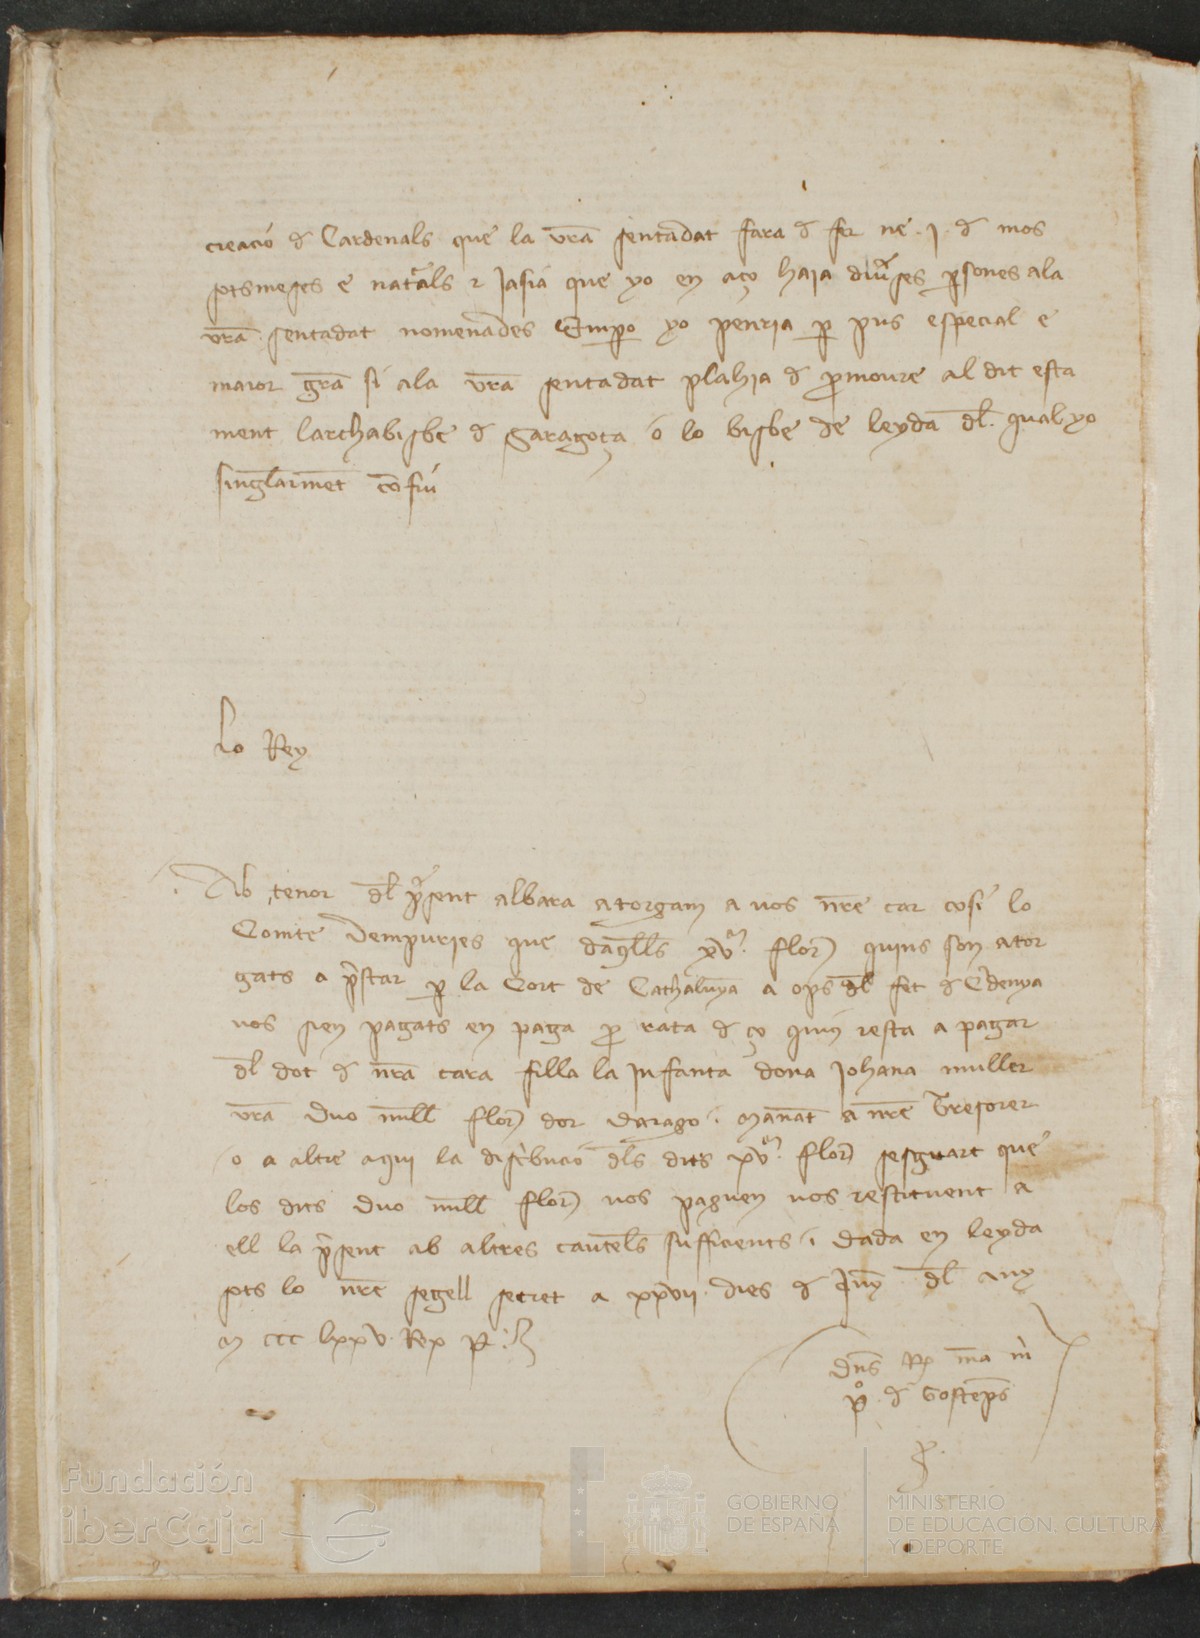 creacio d Cardenals que la vra sentadat fara d fer ne .j. d mos
sotsmeses e natals z jasia que yo en aço haja diuses psones ala
vra sentadat nomenades Empo yo penria p pus especial e
maior gra si ala vra sentadat plahia d pmoure al dit esta
ment larchabisbe d Saragoça o lo bisbe de leyda dl qual yo
singlarment confiu
lo Rey
Ab tenor dl psent albara atorgam a vos nre car cosi lo
Comte dempuries que daqlls xvm. flor quins son ator
gats a pstar p la Cort de Cathalunya a ops dl fet d Cdenya
vos sien pagats en paga p rata d ço quin resta a pagar
dl dot d nra cara filla la Infanta dona Johana muller
vra Duo mill flor dor darago. manat a nre Tresorer
o a altre aqui la distbucio dls dits xvm. flor sesguart que
los dits Duo mill flor vos paguen vos restituent a
ell la psent ab altres cauteles sufficients. Dada en leyda
sots lo nre segell secret a xxvii. dies d Juny dl any
M ccc lxxv. Rex P.
dns Rx ma m
po. d Gostemps
Fundación
iberCaja
GOBIERNO
DE ESPAÑA
MINISTERIO
DE EDUCACIÓN, CULTURA
Y DEPORTE